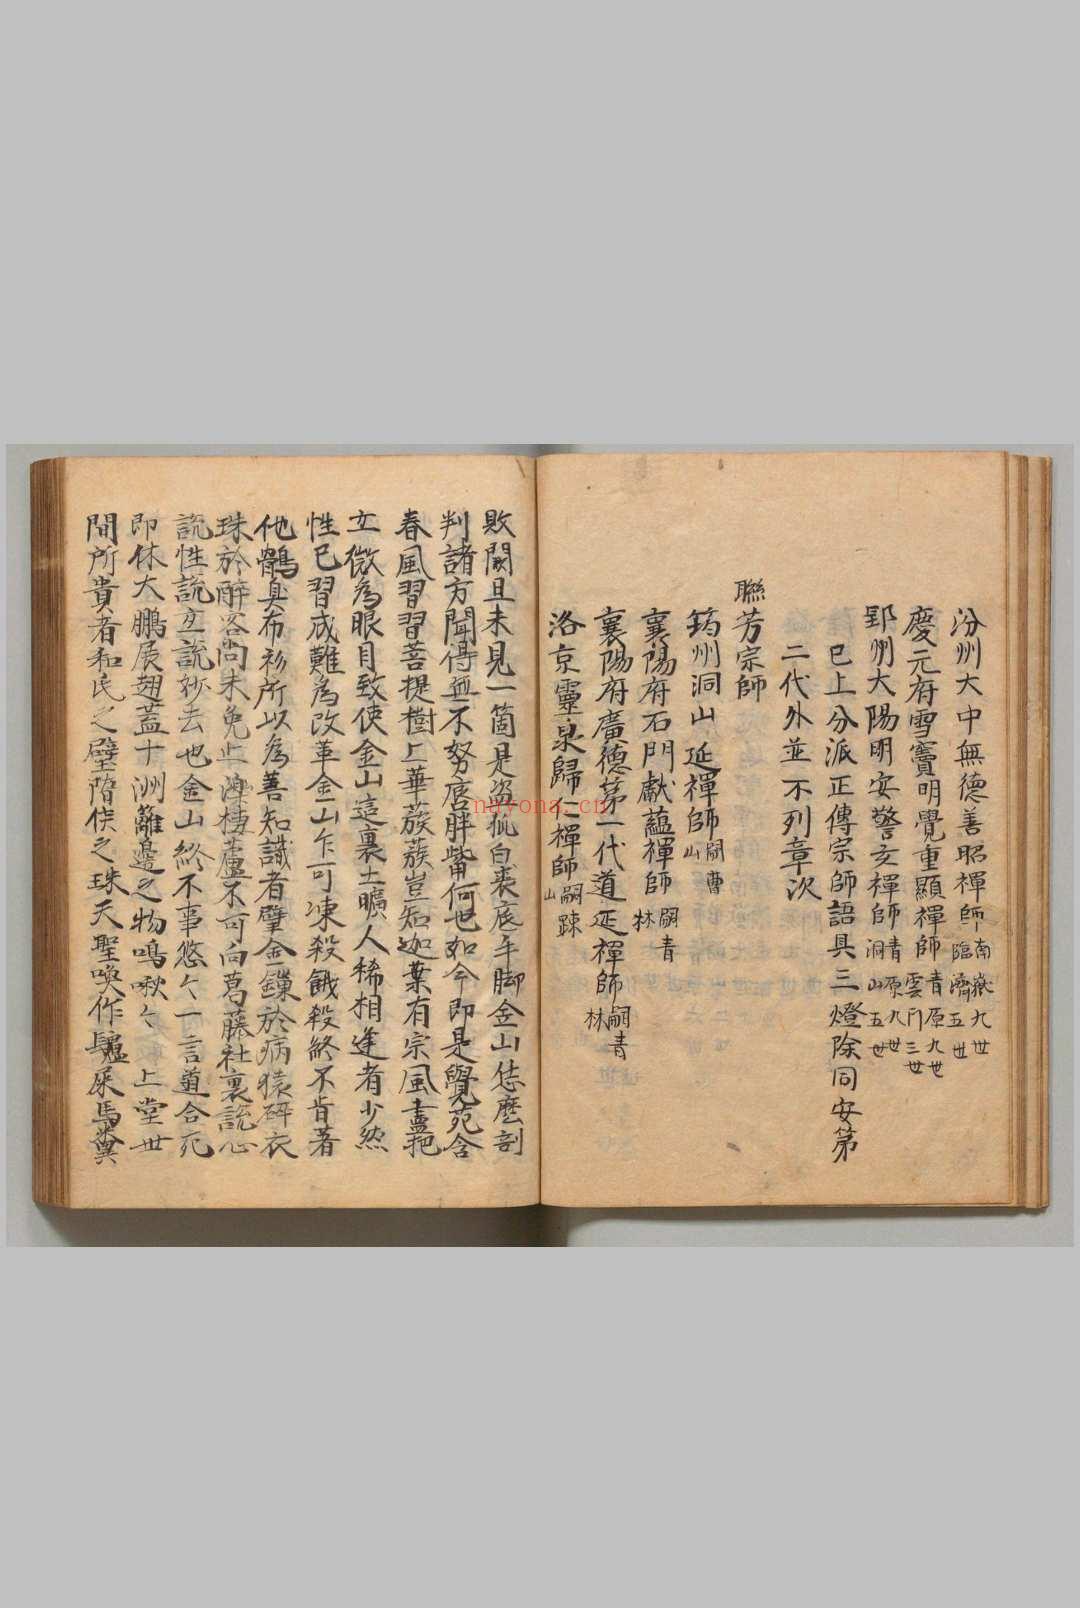 汾州大中無德善昭禪師南嶽九世臨濟五世
慶元府雪竇明覺重顯禪師青原九世雲門三世
郢州大陽明安警玄禪師青原九世洞山五世
已上分派正傳宗師語具三燈除同安第
二代外並不列章次
聯芳宗師
筠州洞山延禪師嗣曹山
襄陽府石門獻蘊禪師嗣青林
襄陽府廣德第一代道延禪師嗣青林
洛京靈泉歸仁禪師嗣疎山
敗闕且未見一箇是盜狐白裘底手脚金山恁麽剖
判諸方聞得無不努唇胖觜何也如今即是覺苑含
春風習習菩提樹上華蔟蔟豈知迦葉有宗風盡把
立微為眼目致使金山這裏土曠人稀相逢者少然
性已習成難為改革金山乍可凍殺餓殺終不肯著
他鶻臭布衫所以為善知識者擘金鏁於病猿碎衣
珠於醉客尚未免止濼棲蘆不可向葛藤社裏說心
說性說玄說妙去也金山終不事悠々一言道合死
即休大鵬展翅蓋十洲籬邊之物鳴啾々上堂世
間所貴者和氏之璧隋侯之珠天聖喚作驢屎馬糞
nayona.cn